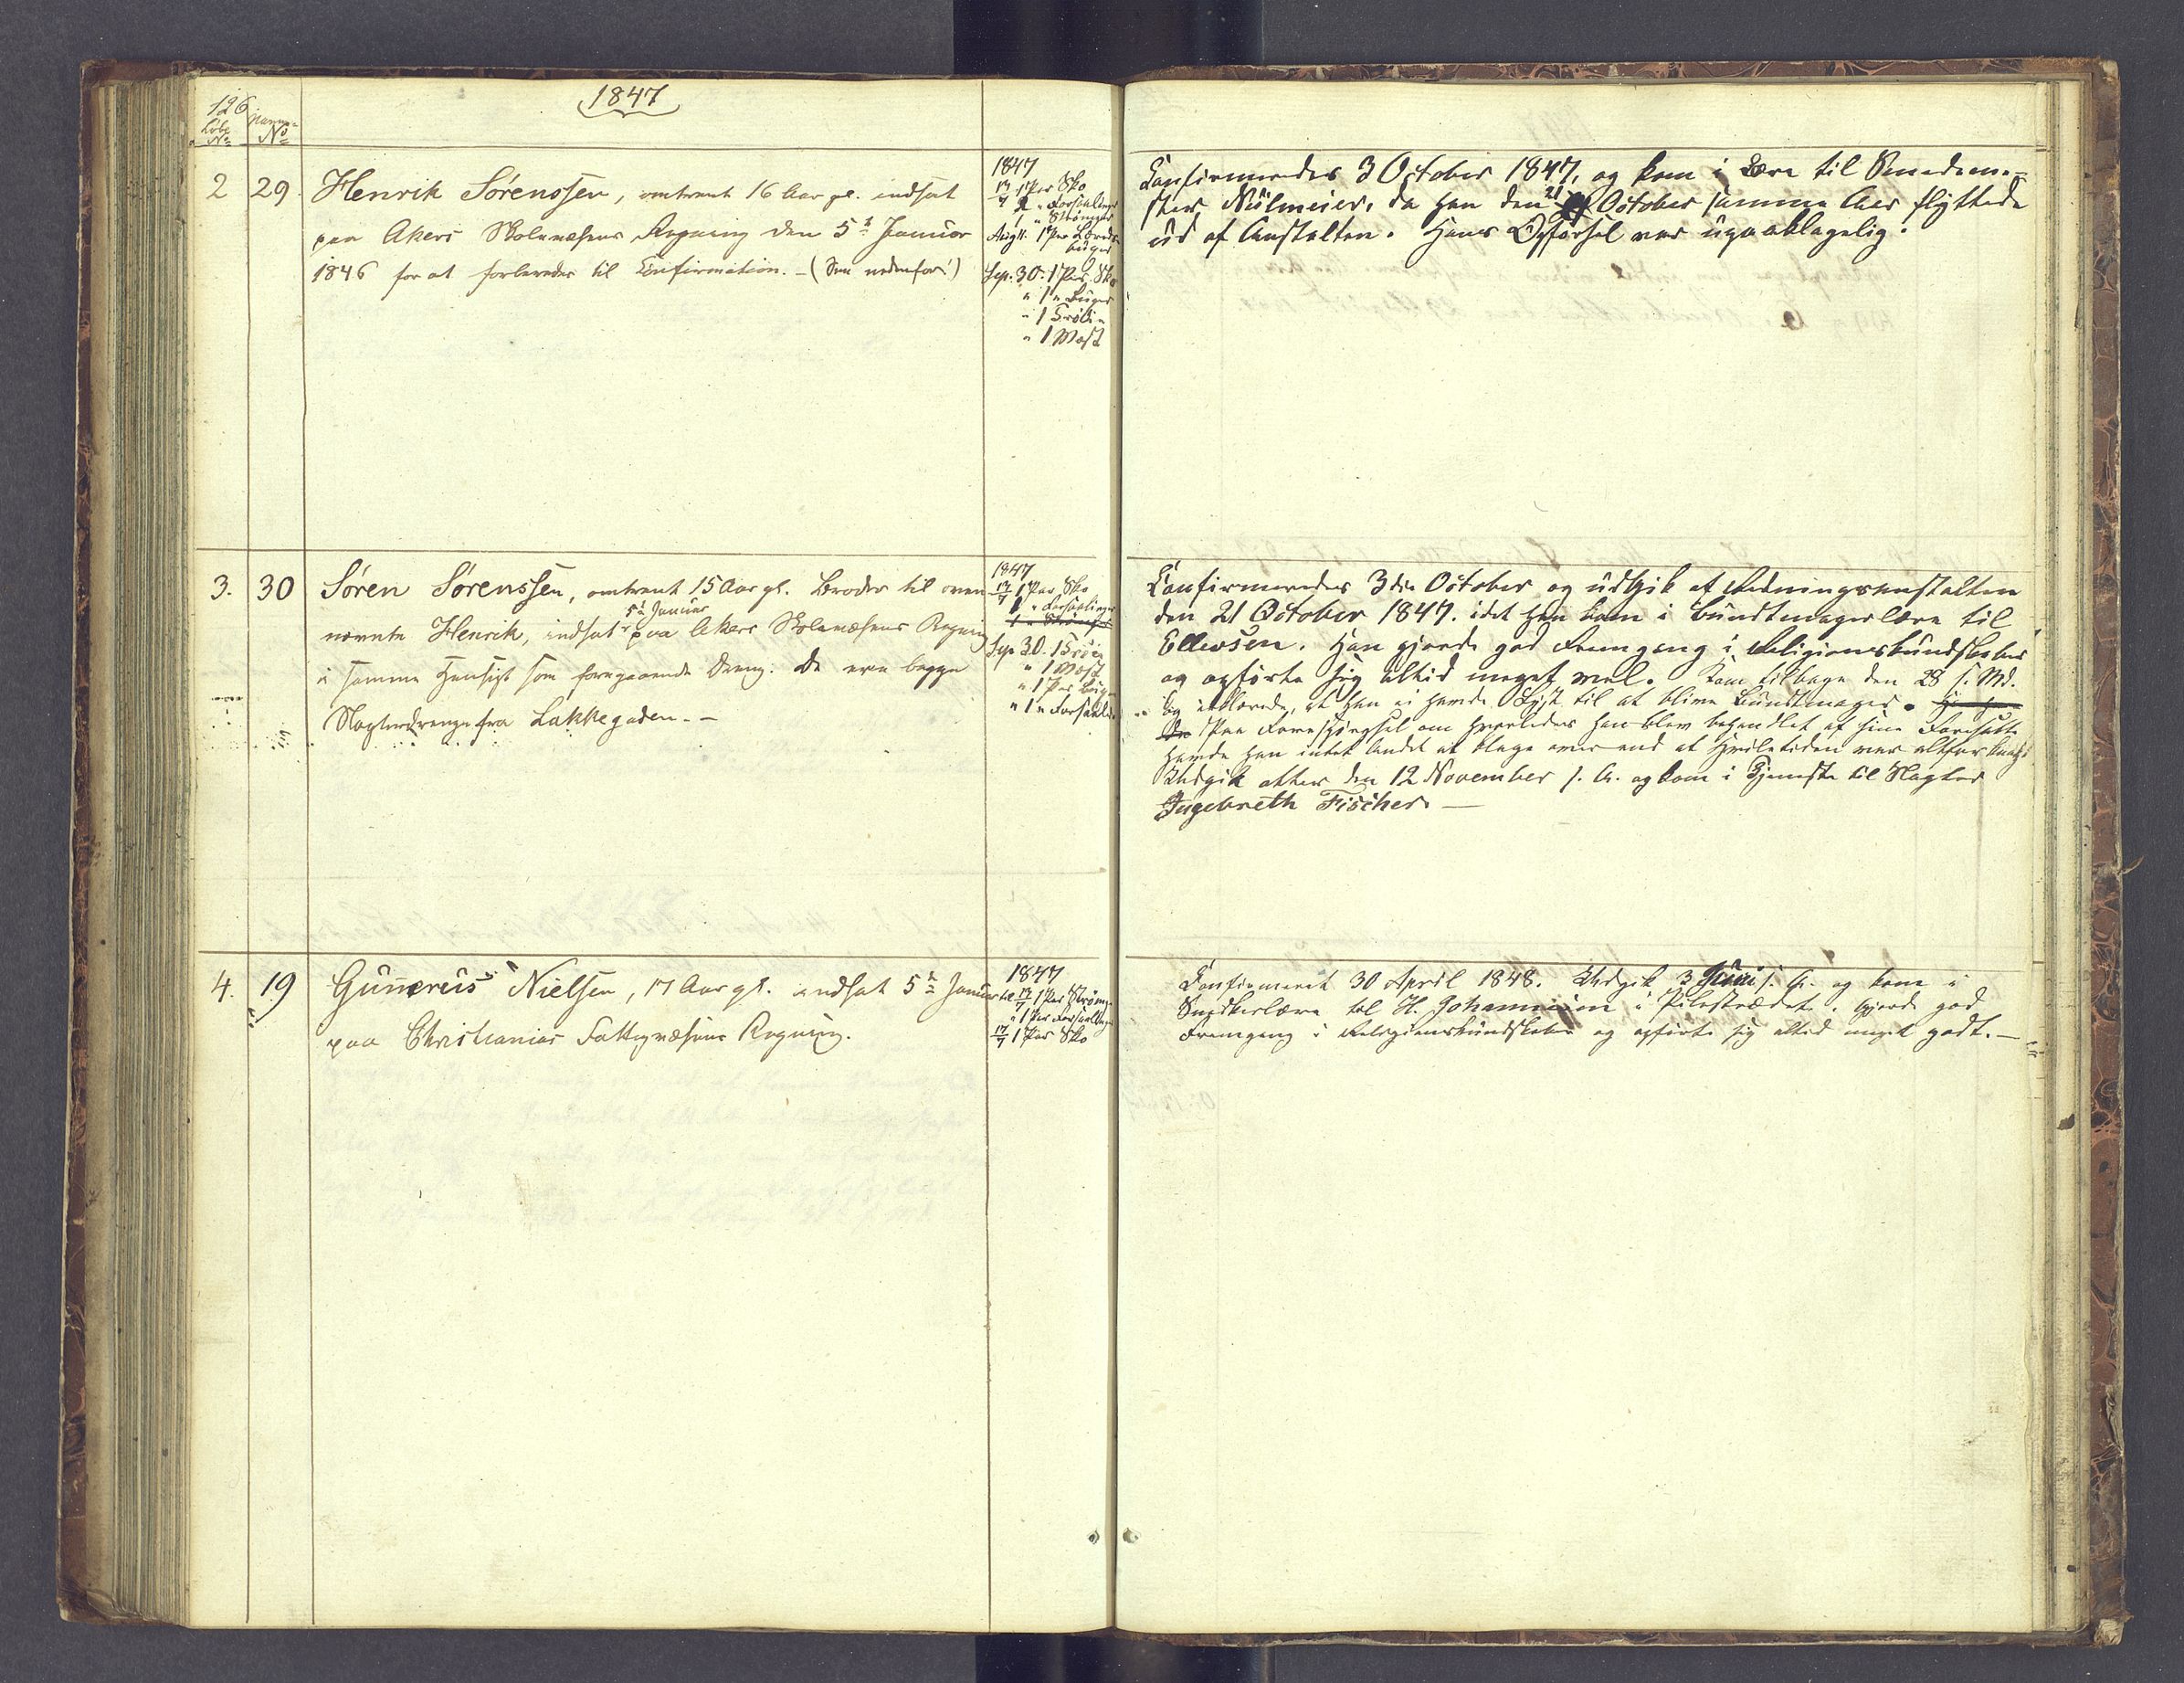 126
1847
Løbe No
Numer No
2 29. Henrik Sörenssen, omtrent 16 Aar gl. indsat
paa Akers Skolevæsens Regning den 5t Januar
1846 for at forberedes til Confirmation. - (See nedenfor!)
1847
17/7 1 Par Sko
1 " Forsaalinger
1 " Strømper
Aug 11. 1 Par Lærreds
buxer
Sep. 30. 1 Par Sko
" 1 " Buxer
" 1 Trøie
" 1 Vest
Confirmeredes 3 October 1847, og kom i Lære til Smedeme-
ster Nülmeier, da han den 21 October samme Aar flyttede
ud af Anstalten. Hans Opførsel var upaaklagelig.
3. 30 Sören Sörenssen, omtrent 15 Aar gl. Broder til oven
5t Januar
nævnte Henrik, indsat paa Akers Skolevæsens Regning
i samme Hensigt som foregaaende Dreng. De ere begge
Slagterdrenge fra Lakkegaden. -
1847
17/7 1 Par Sko
1 " Forsaalinger
1 " Strømper
Sep 30. 1 Trøie
" 1 Vest
" 1 Par Buxer
" 1 " Forsaaling
Confirmeredes 3die October og udgik af Redningsanstalten
den 21 October 1847. idet han kom i Bundtmagerlære til
Ellevsen. Han gjorde god Fremgang i Religionskundskaber
og opførte sig altid meget vel. Kom tilbage den 28 s. Md.
og erklærede, at han ei havde Lyst til at blive Bundtmager.
Paa Forespørgsel om hvorledes han blev behandlet af sine Foresatte
havde han intet Andet at klage over end at Hviletiden var altfor knap.
Udgik atter den 12 November s. A. og kom i Tjeneste til Slagter
Ingebreth Fischer. —
4. 19 Gunerius Nielsen, 17 Aar gl. indsat 5t Januar
paa Christianias Fattigvæsens Regning.
1847
17/7 1 Par Strømper
" 1 Par Forsaaling
17/7 1 Par Sko
Confirmeret 30 April 1848. Udgik 3 Juni s. A. og kom i
Snedkerlære til H. Johannesen i Pilestrædet. Gjorde god
Fremgang i Religionskundskaber og opførte sig altid meget godt. —